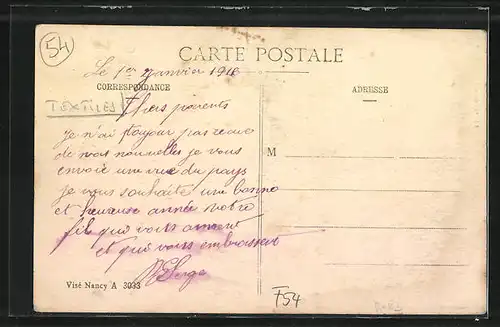 54
CARTE POSTALE
Le 1er Janvier 1916
CORRESPONDANCE
ADRESSE
TEXTILES
Chers parents
Je n'ai toujour pas recue
de vos nouvelles je vous
envoie une vue du pays
M
je vous souhaite une bonne
et heureuse année votre
fils que vous aiment
et qui vous embrassent
Visé Nancy A 3033
F54